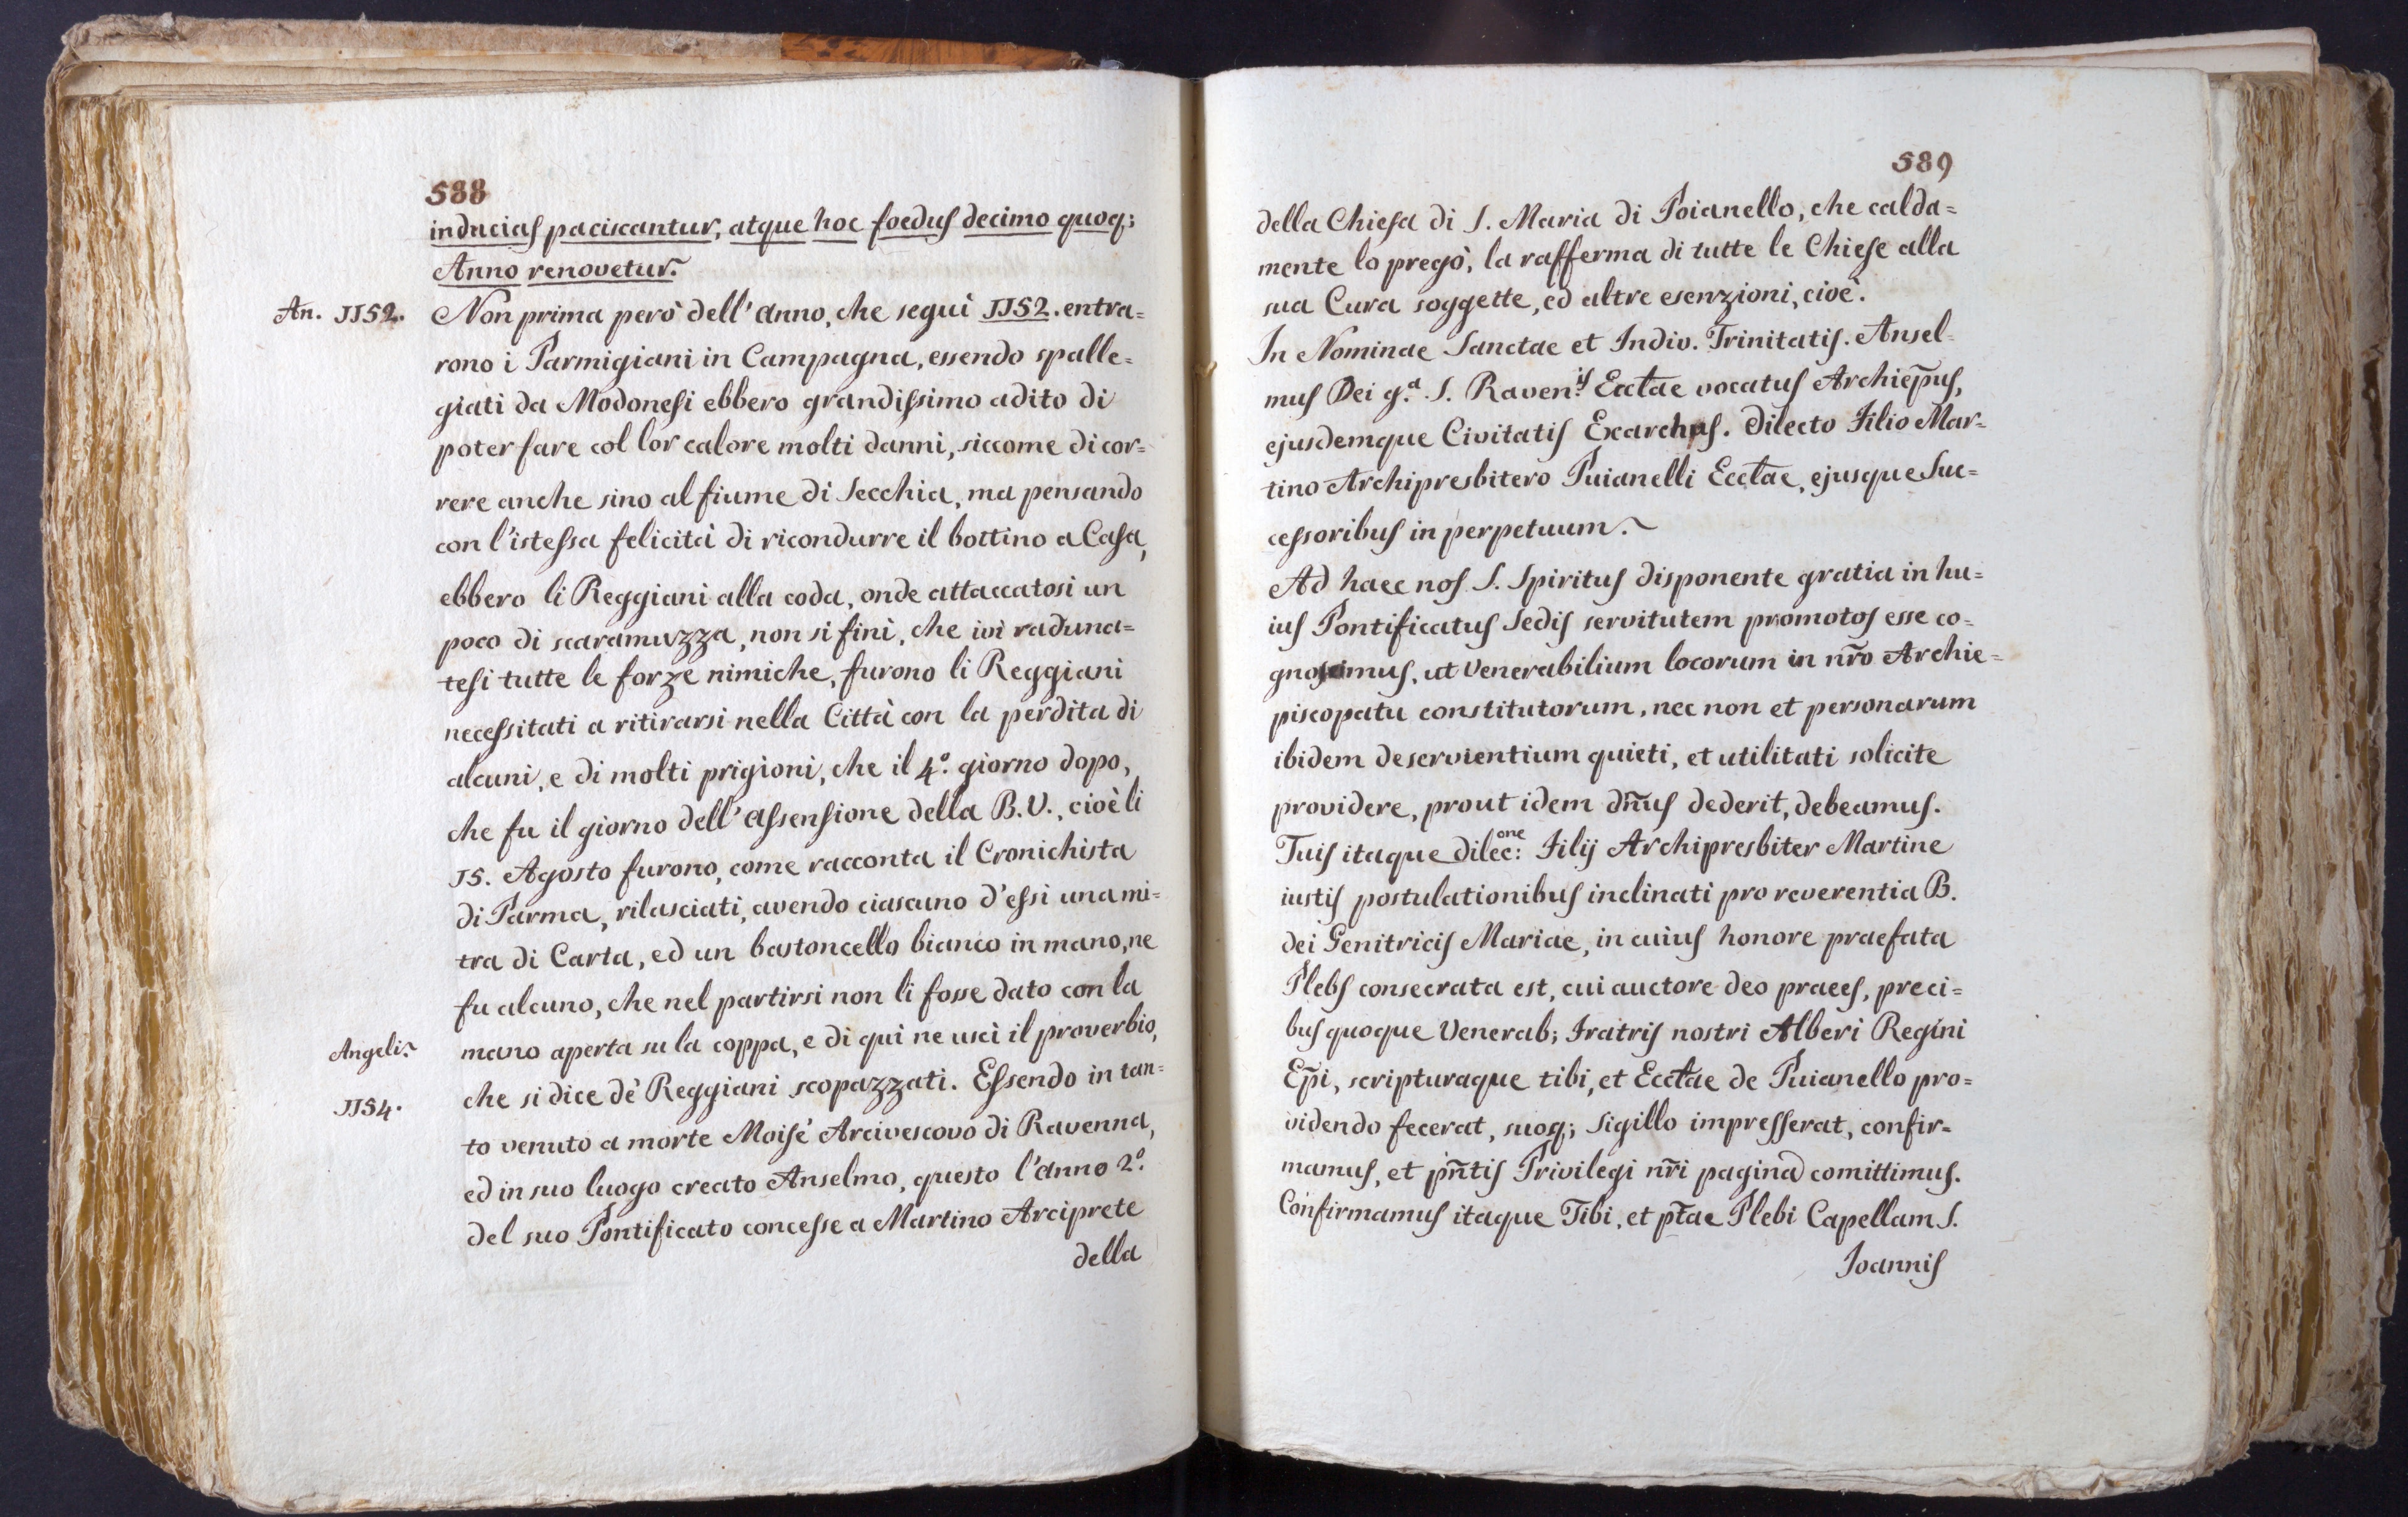 588
inducias paciscantur, atque hoc foedus decimo quoq;
Anno renovetur.
An. 1152.
Non prima però dell'anno, che seguì 1152. entra=
rono i Parmigiani in Campagna, essendo spalle=
giati da Modonesi ebbero grandissimo adito di
poter fare col lor calore molti danni, siccome di cor=
rere anche sino al fiume di Secchia, ma pensando
con l'istessa felicità di ricondurre il bottino a Casa,
ebbero li Reggiani alla coda, onde attaccatosi un
poco di scaramuzza, non si finì, che ivi raduna=
tesi tutte le forze nimiche, furono li Reggiani
necessitati a ritirarsi nella Città con la perdita di
alcuni, e di molti prigioni, che il 4.º giorno dopo,
che fu il giorno dell'assensione della B.V., cioè li
15. Agosto furono, come racconta il Cronichista
di Parma, rilasciati, avendo ciascuno d'essi una mi=
tra di Carta, ed un bastoncello bianco in mano, ne
fu alcuno, che nel partirsi non li fosse dato con la
Angeli.
mano aperta su la coppa, e di quì ne uscì il proverbio,
che si dice de' Reggiani scopazzati. Essendo in tan=
1154.
to venuto a morte Moisè Arcivescovo di Ravenna,
ed in suo luogo creato Anselmo, questo l'anno 2.º
del suo Pontificato concesse a Martino Arciprete
della
589
della Chiesa di S. Maria di Poianello, che calda=
mente lo pregò, la rafferma di tutte le Chiese alla
sua Cura soggette, ed altre esenzioni, cioè.
In Nominae Sanctae et Indiv. Trinitatis. Ansel=
mus Dei g.ª S. Raven.is Ecctae vocatus Archiep̃us,
ejusdemque Civitatis Exarchus. Dilecto Filio Mar=
tino Archipresbitero Puianelli Ecctae, ejusque Suc=
cessoribus in perpetuum.
Ad haec nos S. Spiritus disponente gratia in hu=
ius Pontificatus Sedis servitutem promotos esse co=
gnoscimus, ut Venerabilium locorum in nr̃o Archie=
piscopatu constitutorum, nec non et personarum
ibidem deservientium quieti, et utilitati solicite
providere, prout idem dñus dederit, debeamus.
Tuis itaque dilec:one Filij Archipresbiter Martine
iustis postulationibus inclinati pro reverentia B.
dei Genitricis Mariae, in cuius honore praefata
Plebs consecrata est, cui auctore deo praees, preci=
bus quoque Venerab; Fratris nostri Alberi Regini
Ep̃i, scripturaque tibi, et Ecctae de Puianello pro=
videndo fecerat, suoq; sigillo impresserat, confir=
mamus, et pñtis Privilegi nr̃i pagina comittimus.
Confirmamus itaque Tibi, et p̃tae Plebi Capellam S.
Joannis